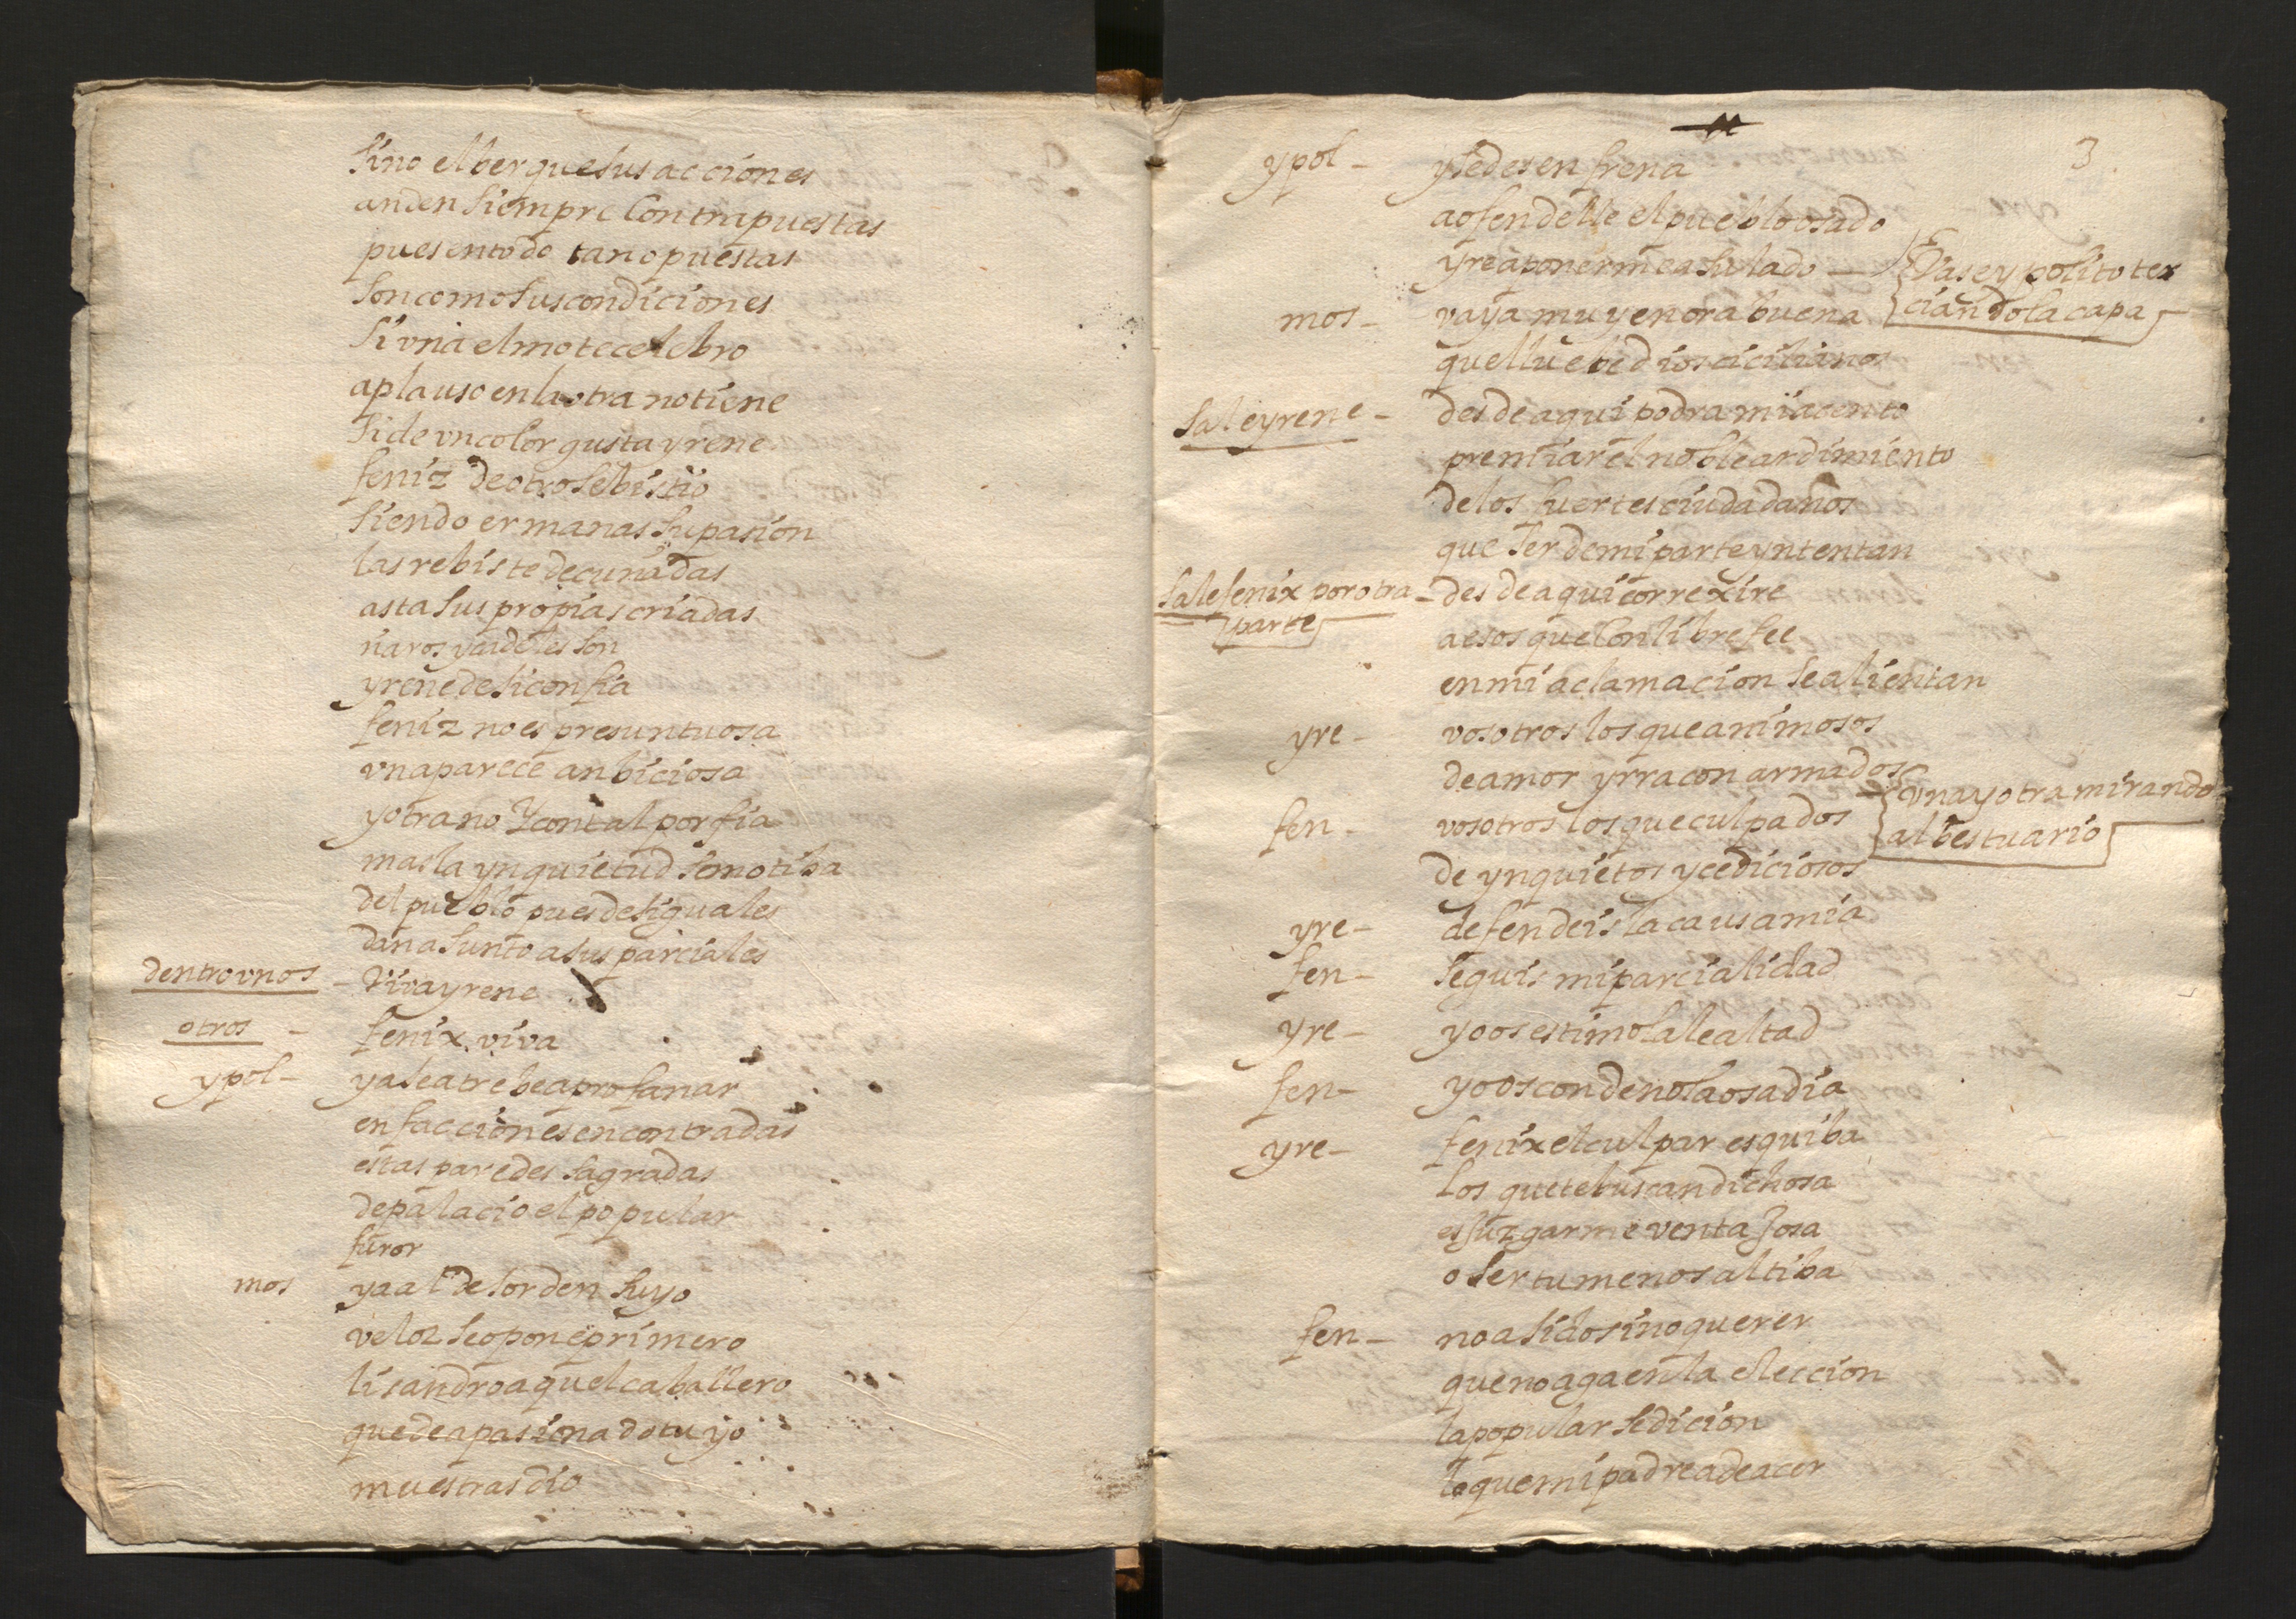 sino el ber que sus acciones
anden siempre Contrapuestas
pues en todo tan opuestas
son como sus condiciones
si vna el mote celebro
aplauso en la otra no tiene
si de vn color gusta yrene
feniz de otro se bistio
siendo ermanas su pasion
las rebiste de cunadas
asta sus propias criadas
son
yrene de si confia
feniz no es presuntuosa
vna parece anbiciosa
y otra no Y con tal porfia
mas la ynquietud se motiba
del pueblo pues desiguales
dan asunto a sus parciales
dentro vnos – Viva yrene
otros – fenix viva
ypol – ya se atrebe a profanar
en facciones encontradas
estas paredes sagradas
de palacio el popular
furor
mos ya al desorden suyo
veloz se opone primero
lisandro aquel caballero
que de apasionado tuyo
muestras dio
3
ypol – y se desenfrena
a ofendelle el pueblo osado
yre a ponerme a su lado – Vase ypolito ter
ciando la capa
mos – vaya muy enora buena
que lluebe dios cicilianos
sale yrene – desde aqui podra mi acento
premiar el noble ardimiento
de los fuertes ciudadanos
que ser de mi parte yntentan
sale fenix por otra – desde aqui correxire
parte
a esos que Con libre fee
en mi aclamacion se alientan
yre – vosotros los que animosos
de amor y rracon armados
fen – vosotros los que culpados – vna y otra mirando
al bestuario
de ynquietos y cediciosos
yre – defendeis la causa mia
fen – seguis mi parcialidad
yre – yo os estimo la lealtad
fen – yo os condeno la osadia
yre – fenix el culpar esquiba
los que te buscan dichosa
es juzgarme ventajosa
o ser tu menos altiba
fen – no a sido sino querer
que no aga en la eleccion
la popular sedicion
lo que mi padre a de acer